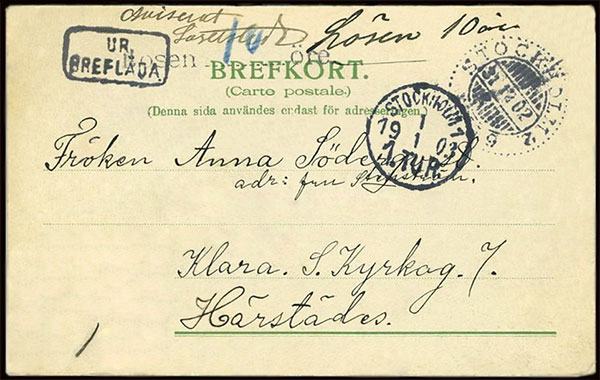 Aviserat
Lösen 10 öre
UR
BREFLÅDA.
Lösen 10 öre.
BREFKORT.
(Carte postale.)
(Denna sida användes endast för adresseringen.)
STOCKHOLM
31 12 02
STOCKHOLM 1
1
19 1 03
1 TUR
Fröken Anna
adr: fru
Klara. S. Kyrkog. 7.
Härstädes.